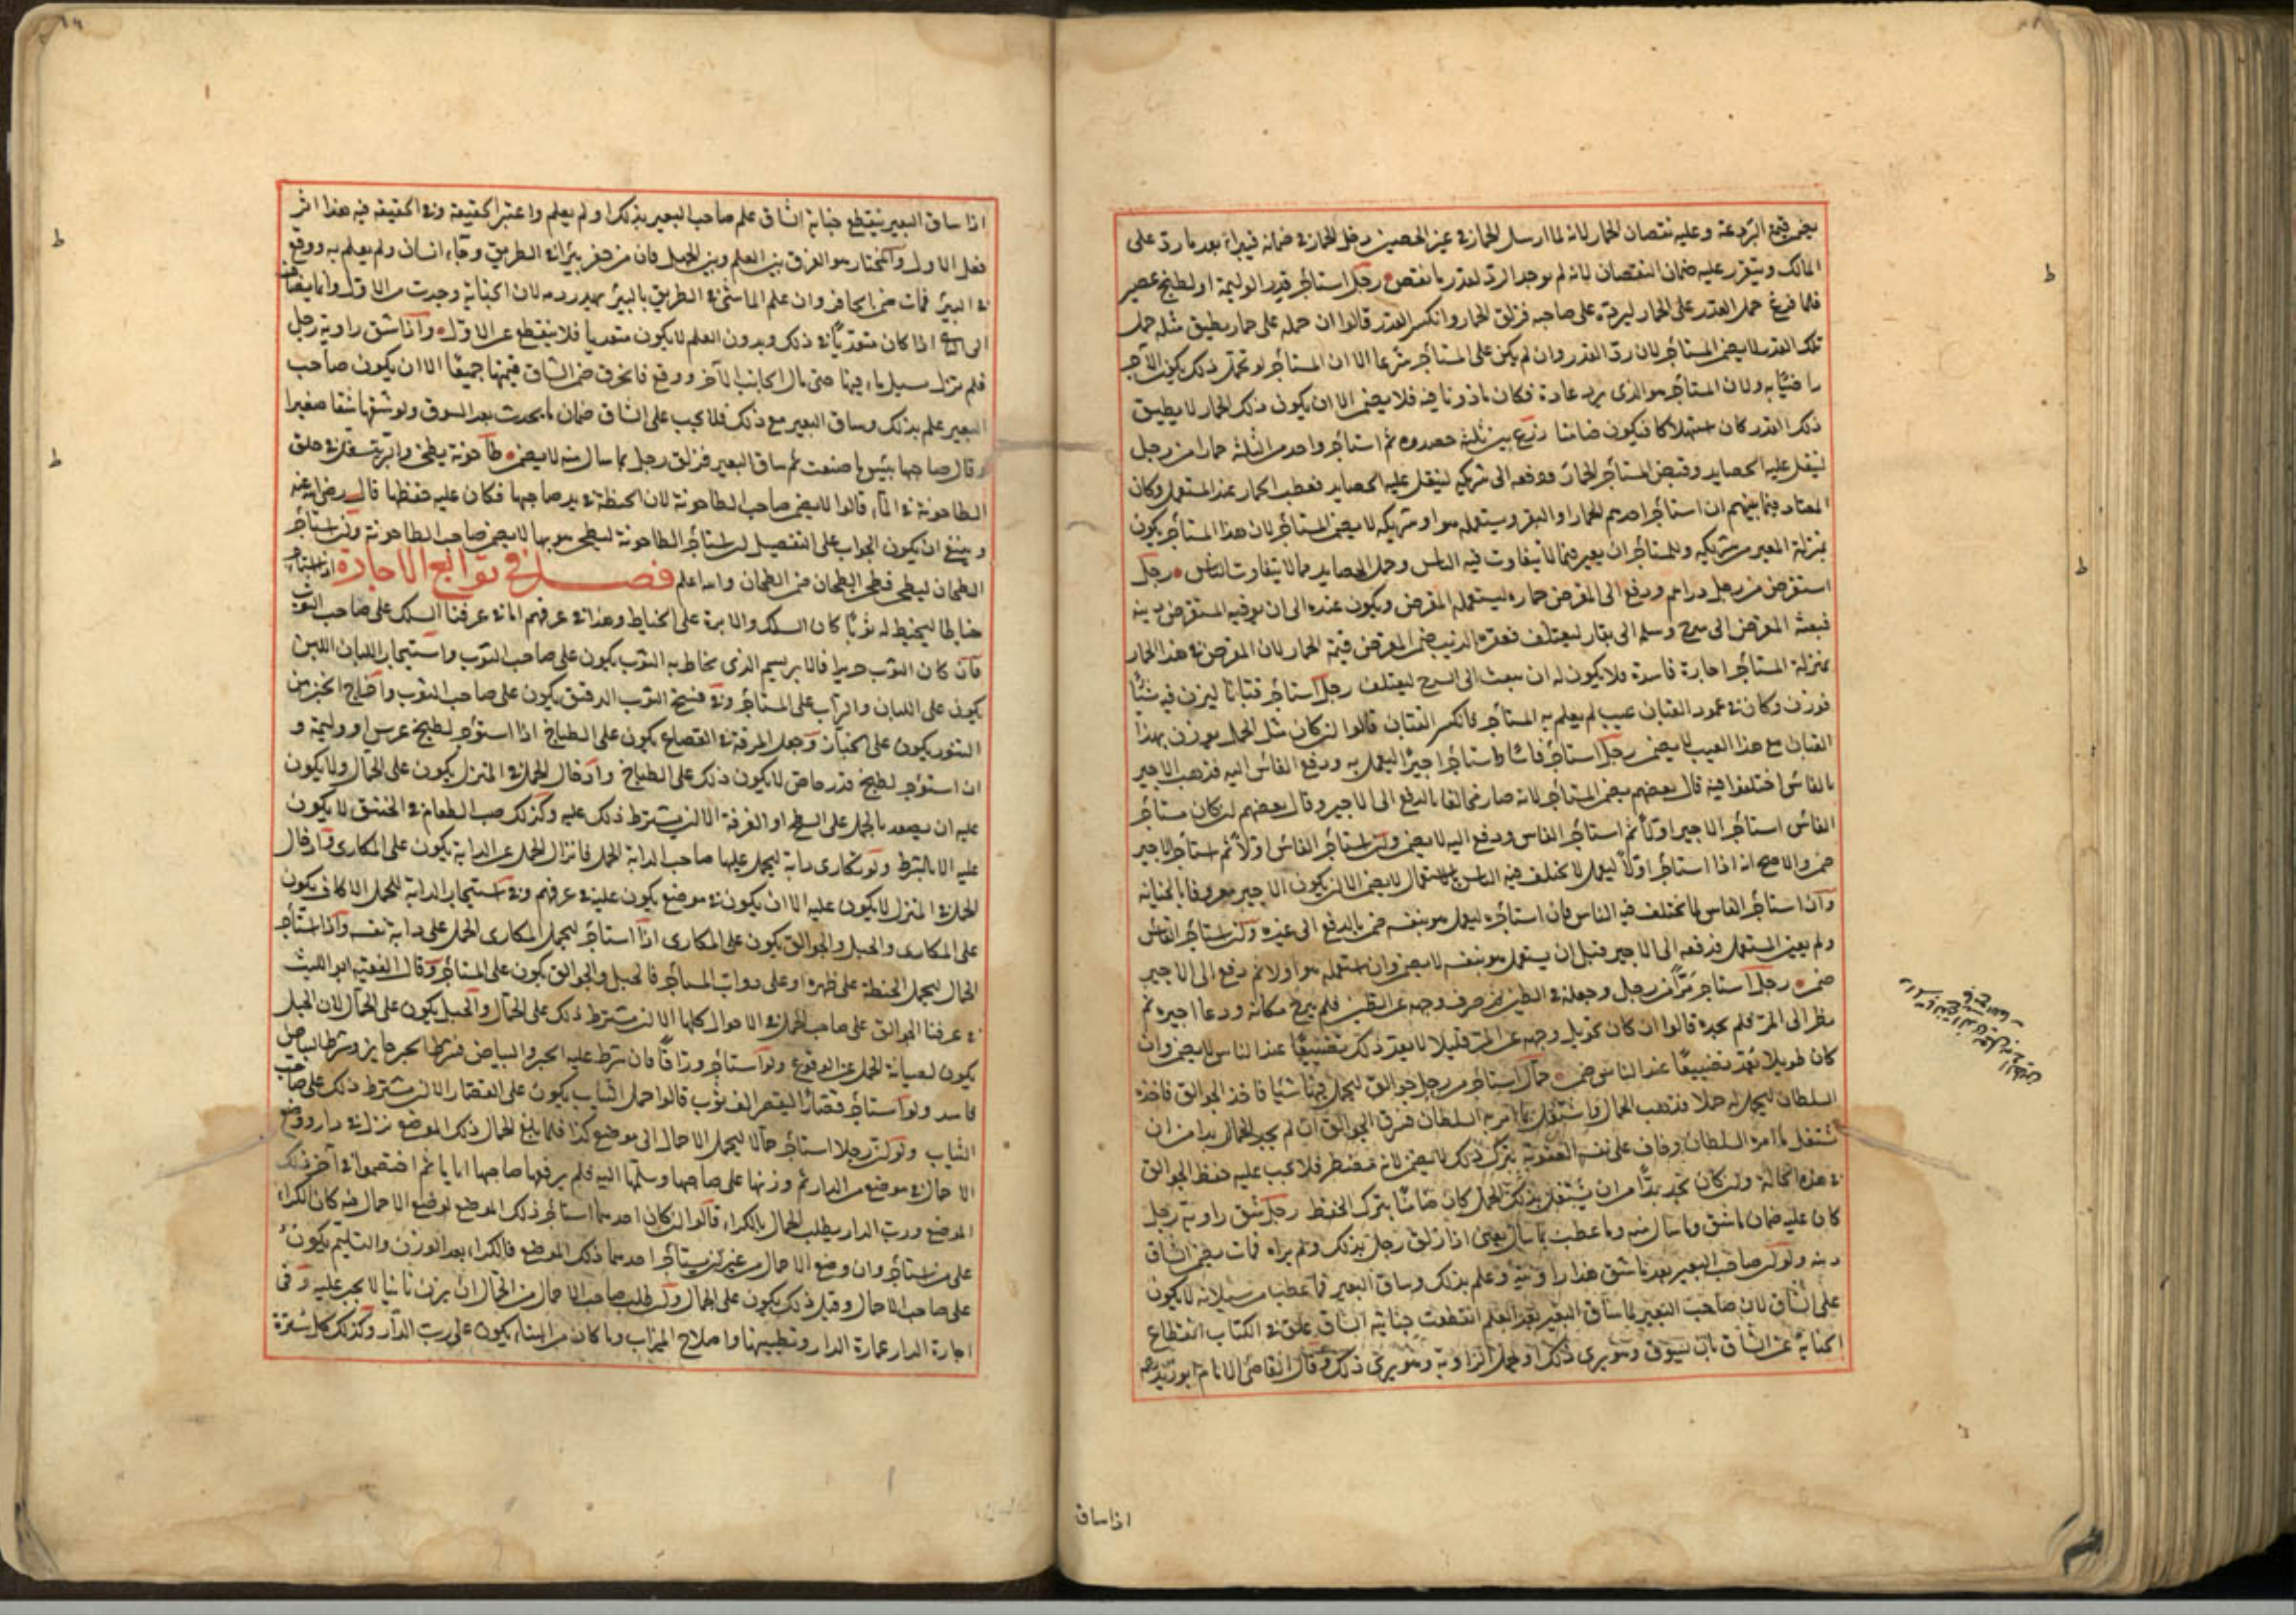 يضمن قيمة البردعة وعليه نقصان الحمار لانه لما ارسل الحمار في غير الحصين دخل الحمار في ضمانه فيبرأ بعد ما رد على
المالك ويتقرر عليه ضمان النقصان لانه لم يوجد الرد لقدر ما نقص رجل استأجر قدر الوليمة او لطبخ عصير
فلما فرغ حمل القدر على الحمار ليرده على صاحبه فزلق الحمار وانكسر القدر قالوا ان حمله على حمار يطيق مثله حمل
تلك القدر لا يضمن المستأجر لان رد القدر وان لم يكن على المستأجر شرعا الا ان المستأجر لو تحمل ذلك يكون الآجر
راضيا به ولان المستأجر هو الذي يرد عادة فكان ماذونا فيه فلا يضمن الا ان يكون ذلك الحمار لا يطيق
ذلك القدر كان استهلاكا فيكون ضامنا زرع بين ثلثة حصدوه ثم استأجر واحد من الثلثة حمارا من رجل
لينقل عليه الحصايد وقبض المستأجر الحمار ودفعه الى شريكه لينقل عليه الحصايد فعطب الحمار عند المستعمل وكان
المعتاد فيما بينهم ان استأجر احدهم الحمار او البقر ويستعمله هو او شريكه لا يضمن المستأجر لان هذا المستأجر يكون
بمنزلة المعير من شريكه وللمستأجر ان يعير فيما لا يتفاوت فيه الناس وحمل الحصايد مما لا يتفاوت الناس رجل
استقرض من رجل دراهم ودفع الى المقرض حماره ليستعمله المقرض ويكون عنده الى ان يوفيه المستقرض دينه
فبعثه المقرض الى سرح وسلمه الى بقار ليعتلف فعقره الذئب ضمن المقرض قيمة الحمار لان المقرض في هذا الحمار
بمنزلة المستأجر اجارة فاسدة ولا يكون له ان يبعث الى السرح ليعتلف رجل استأجر قبانا ليزن فيه شيئا
فوزن وكان في عمود القبان عيب لم يعلم به المستأجر فانكسر القبان قالوا ان كان مثل الحمل يوزن بهذا
القبان مع هذا العيب لا يضمن رجل استأجر فاسا واستأجر اجيرا ليعمل به ودفع الفاس اليه فذهب الاجير
بالفاس اختلفوا فيه قال بعضهم يضمن المستأجر لانه صار مخالفا بالدفع الى الاجير وقال بعضهم ان كان مستأجر
الفاس استأجر الاجير اولا ثم استأجر الفاس ودفع اليه لا يضمن وان استأجر الفاس اولا ثم استأجر الاجير
ضمن والاصح انه اذا استأجر اولا ليعمل لا يختلف فيه الناس بالاستعمال لا يضمن الا ان يكون الاجير معروفا بالخيانة
وان استأجر الفاس لما يختلف فيه الناس فان استأجره ليعمل هو بنفسه ضمن بالدفع الى غيره وان استأجر الفاس
ولم يعين المستعمل فدفعه الى الاجير قبل ان يستعمل هو بنفسه لا يضمن وان استعمله هو اولا ثم دفع الى الاجير
ضمن رجل استأجر مرا من رجل وجعله في الطين ثم صرف وجهه عن الطين فلم يبرح مكانه ودعا اجيره ثم
نظر الى المر فلم يجده قالوا ان كان تحويل وجهه عن المر قليلا لا يعد ذلك تضييعا عند الناس لا يضمن وان
كان طويلا يعد تضييعا عند الناس ضمن حمال استأجر من رجل جوالق ليحمل فيها شيئا فاخذ الجوالق فاخذه
السلطان ليحمل له حملا فذهب الحمال واشتغل بما امر به السلطان فسرق الجوالق ان لم يجد الحمال بدا من ان
يشتغل بما امره السلطان وخاف على نفسه العقوبة بترك ذلك لا يضمن لانه مضطر فلا يجب عليه حفظ الجوالق
في هذه الحالة وان كان يجد بدا من ان يشتغل بذلك الحمل كان ضامنا بترك الحفظ رجل شق راوية رجل
كان عليه ضمان ما شق وما سال منه وما عطب بما سال يعني اذا زلق رجل بذلك ولم يراه فمات يضمن الشاق
دمه ولو كان صاحب البعير بعد ما شق هذا راويته وعلم بذلك وساق البعير فما عطب من سيلانه لا يكون
على الشاق لان صاحب البعير لما ساق البعير بعد العلم انقطعت جناية الشاق علق في الكتاب انقطاع
الجناية عن الشاق بان يسوق وهو يرى ذلك او يحمل الراوية وهو يرى ذلك وقال القاضي الامام ابو زيد رحمه
اذا ساق
اذا ساق البعير ينقطع جناية الشاق علم صاحب البعير بذلك او لم يعلم واعتبر الحقيقة وفي الحقيقة فيه هذا اثر
فعل الاول والمختار هو الفرق بين العلم وبين الجهل فان من حفر بئرا في الطريق وجاء انسان ولم يعلم به ووقع
في البئر فمات ضمن الحافر وان علم الماشي في الطريق بالبئر يهدر دمه لان الجناية وجدت من الاول وانما يضاف
الى الثاني اذا كان متعديا في ذلك وبدون العلم لا يكون متعديا فلا ينقطع عن الاول واذا شق راوية رجل
فلم يزل يسيل ما فيها حتى مال الجانب الآخر ووقع فانخرق ضمن الشاق قيمتها جميعا الا ان يكون صاحب
البعير علم بذلك وساق البعير مع ذلك فلا يجب على الشاق ضمان ما يحدث بعد السوق ولو شقها شقا صغيرا
وقال صاحبها بئس ما صنعت ثم ساق البعير فزلق رجل بما سال منه لا يضمن طاحونة يطحن
الطاحونة في الماء قالوا لا يضمن صاحب الطاحونة لان الحنطة في يد صاحبها فكان عليه حفظها قال رضي الله عنه
وينبغي ان يكون الجواب على التفصيل ان استأجر الطاحونة ليطحن هو بها لا يضمن صاحب الطاحونة وان استأجر
الطحان ليطحن فطحن الطحان ضمن الطحان والله اعلم فصل في توابع الاجارة اذا استأجر
خياطا ليخيط له ثوبا كان السلك والابرة على الخياط وهذا في عرفهم اما في عرفنا السلك على صاحب الثوب
فان كان الثوب حريرا فالابريسم الذي يخاط به الثوب يكون على صاحب الثوب واستيجار اللبان اللبن
يكون على اللبان والتراب على المستأجر وفي نسج الثوب الدقيق يكون على صاحب الثوب واخراج الخبز من
التنور يكون على الخباز وجعل المرقة في القصاع يكون على الطباخ اذا استؤجر لطبخ عرس او وليمة و
ان استؤجر لطبخ قدر خاص لا يكون ذلك على الطباخ وادخال الحمل في المنزل يكون على الحمال ولا يكون
عليه ان يصعد بالحمل على السطح او الغرفة الا ان يشترط ذلك عليه وكذلك صب الطعام في الخنبق لا يكون
عليه الا بالشرط ولو تكارى دابة ليحمل عليها صاحب الدابة الحمل فانزال الحمل عن الدابة يكون على المكاري وادخال
الحمل في المنزل لا يكون عليه الا ان يكون في موضع يكون عليه في عرفهم وفي استيجار الدابة للحمل الاكاف يكون
على المكاري والحبل والجوالق يكون على المكاري اذا استأجر ليحمل المكاري الحمل على دابة نفسه واذا استأجر
الحمال ليحمل الحنطة على ظهره او على دواب المستأجر فالحبل والجوالق يكون على المستأجر وقال الفقيه ابو الليث
في عرفنا الجوالق على صاحب الحمل في الاحوال كلها الا ان يشترط ذلك على الحمال والحبل يكون على الحمال لان الحبل
يكون لصيانة الحمل عن الوقوع ولو استأجر وراقا فان شرط عليه الحبر والبياض فشرط الحبر جايز وشرط البياض
فاسد ولو استأجر قصارا ليقصر الف ثوب قالوا حمل الثياب يكون على القصار الا ان يشترط ذلك على صاحب
الثياب ولو ان رجلا استأجر حمالا ليحمل الاحمال الى موضع كذا فلما بلغ الحمال ذلك الموضع نزل في دار ووضع
الاحمال في موضع من الدار ثم وزنها على صاحبها وسلمها اليه فلم يرفعها صاحبها اياما ثم اختصموا في آخر ذلك
الموضع ورب الدار يطلب الحمال بالكراء قالوا ان كان احدهما استأجر ذلك الموضع لوضع الاحمال فيه كان الكراء
على من استأجر وان وضع الاحمال من غير ان يستأجر احدهما ذلك الموضع فالكراء بعد الوزن والتسليم يكون
على صاحب الاحمال وقبل ذلك يكون على الحمال وان طلب صاحب الاحمال من الحمال ان يزن ثانيا لا يجبر عليه وفي
اجارة الدار عمارة الدار وتطيينها واصلاح الميزاب وما كان من البناء يكون على رب الدار وكذلك كل سترة